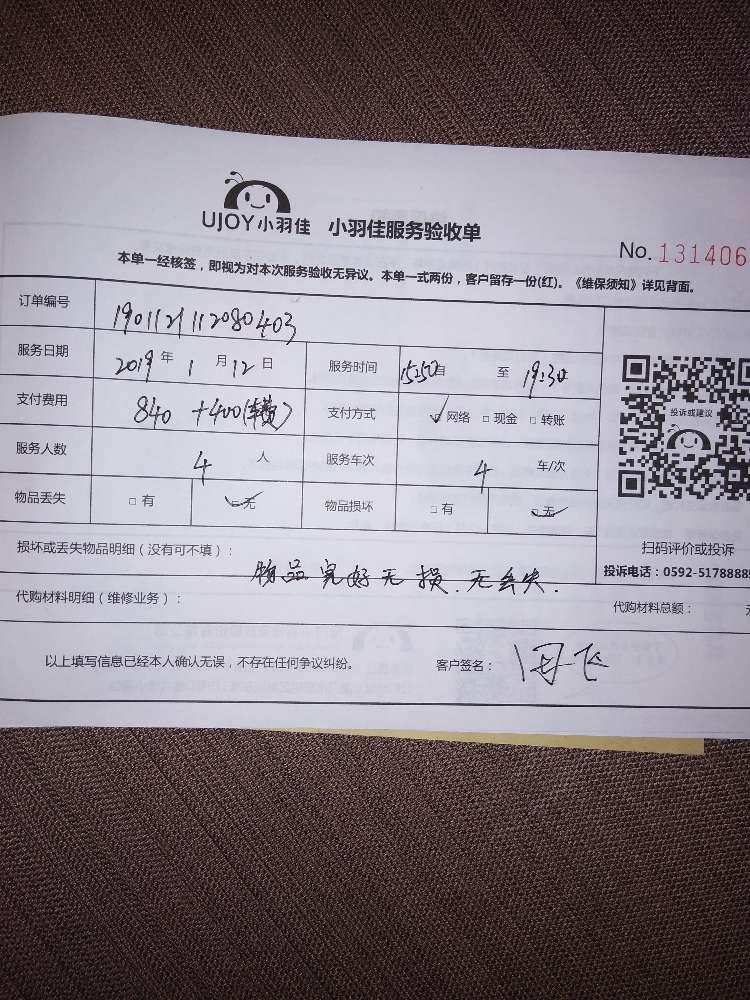 UJOY小羽佳 小羽佳服务验收单
No. 131406
本单一经核签，即视为对本次服务验收无异议。本单一式两份，客户留存一份(红)。《维保须知》详见背面。
订单编号 1901121112080403
服务日期 2019 年 1 月 12 日 服务时间 15:50 自 至 19:30
支付费用 840 +400(车费) 支付方式 网络 现金 转账
服务人数 4 人 服务车次 4 车/次
物品丢失 有 无 物品损坏 有 无
投诉或建议
扫码评价或投诉
投诉电话：0592-5178888
损坏或丢失物品明细（没有可不填）：
物品完好无损.无丢失.
代购材料明细（维修业务）： 代购材料总额：
以上填写信息已经本人确认无误，不存在任何争议纠纷。 客户签名：